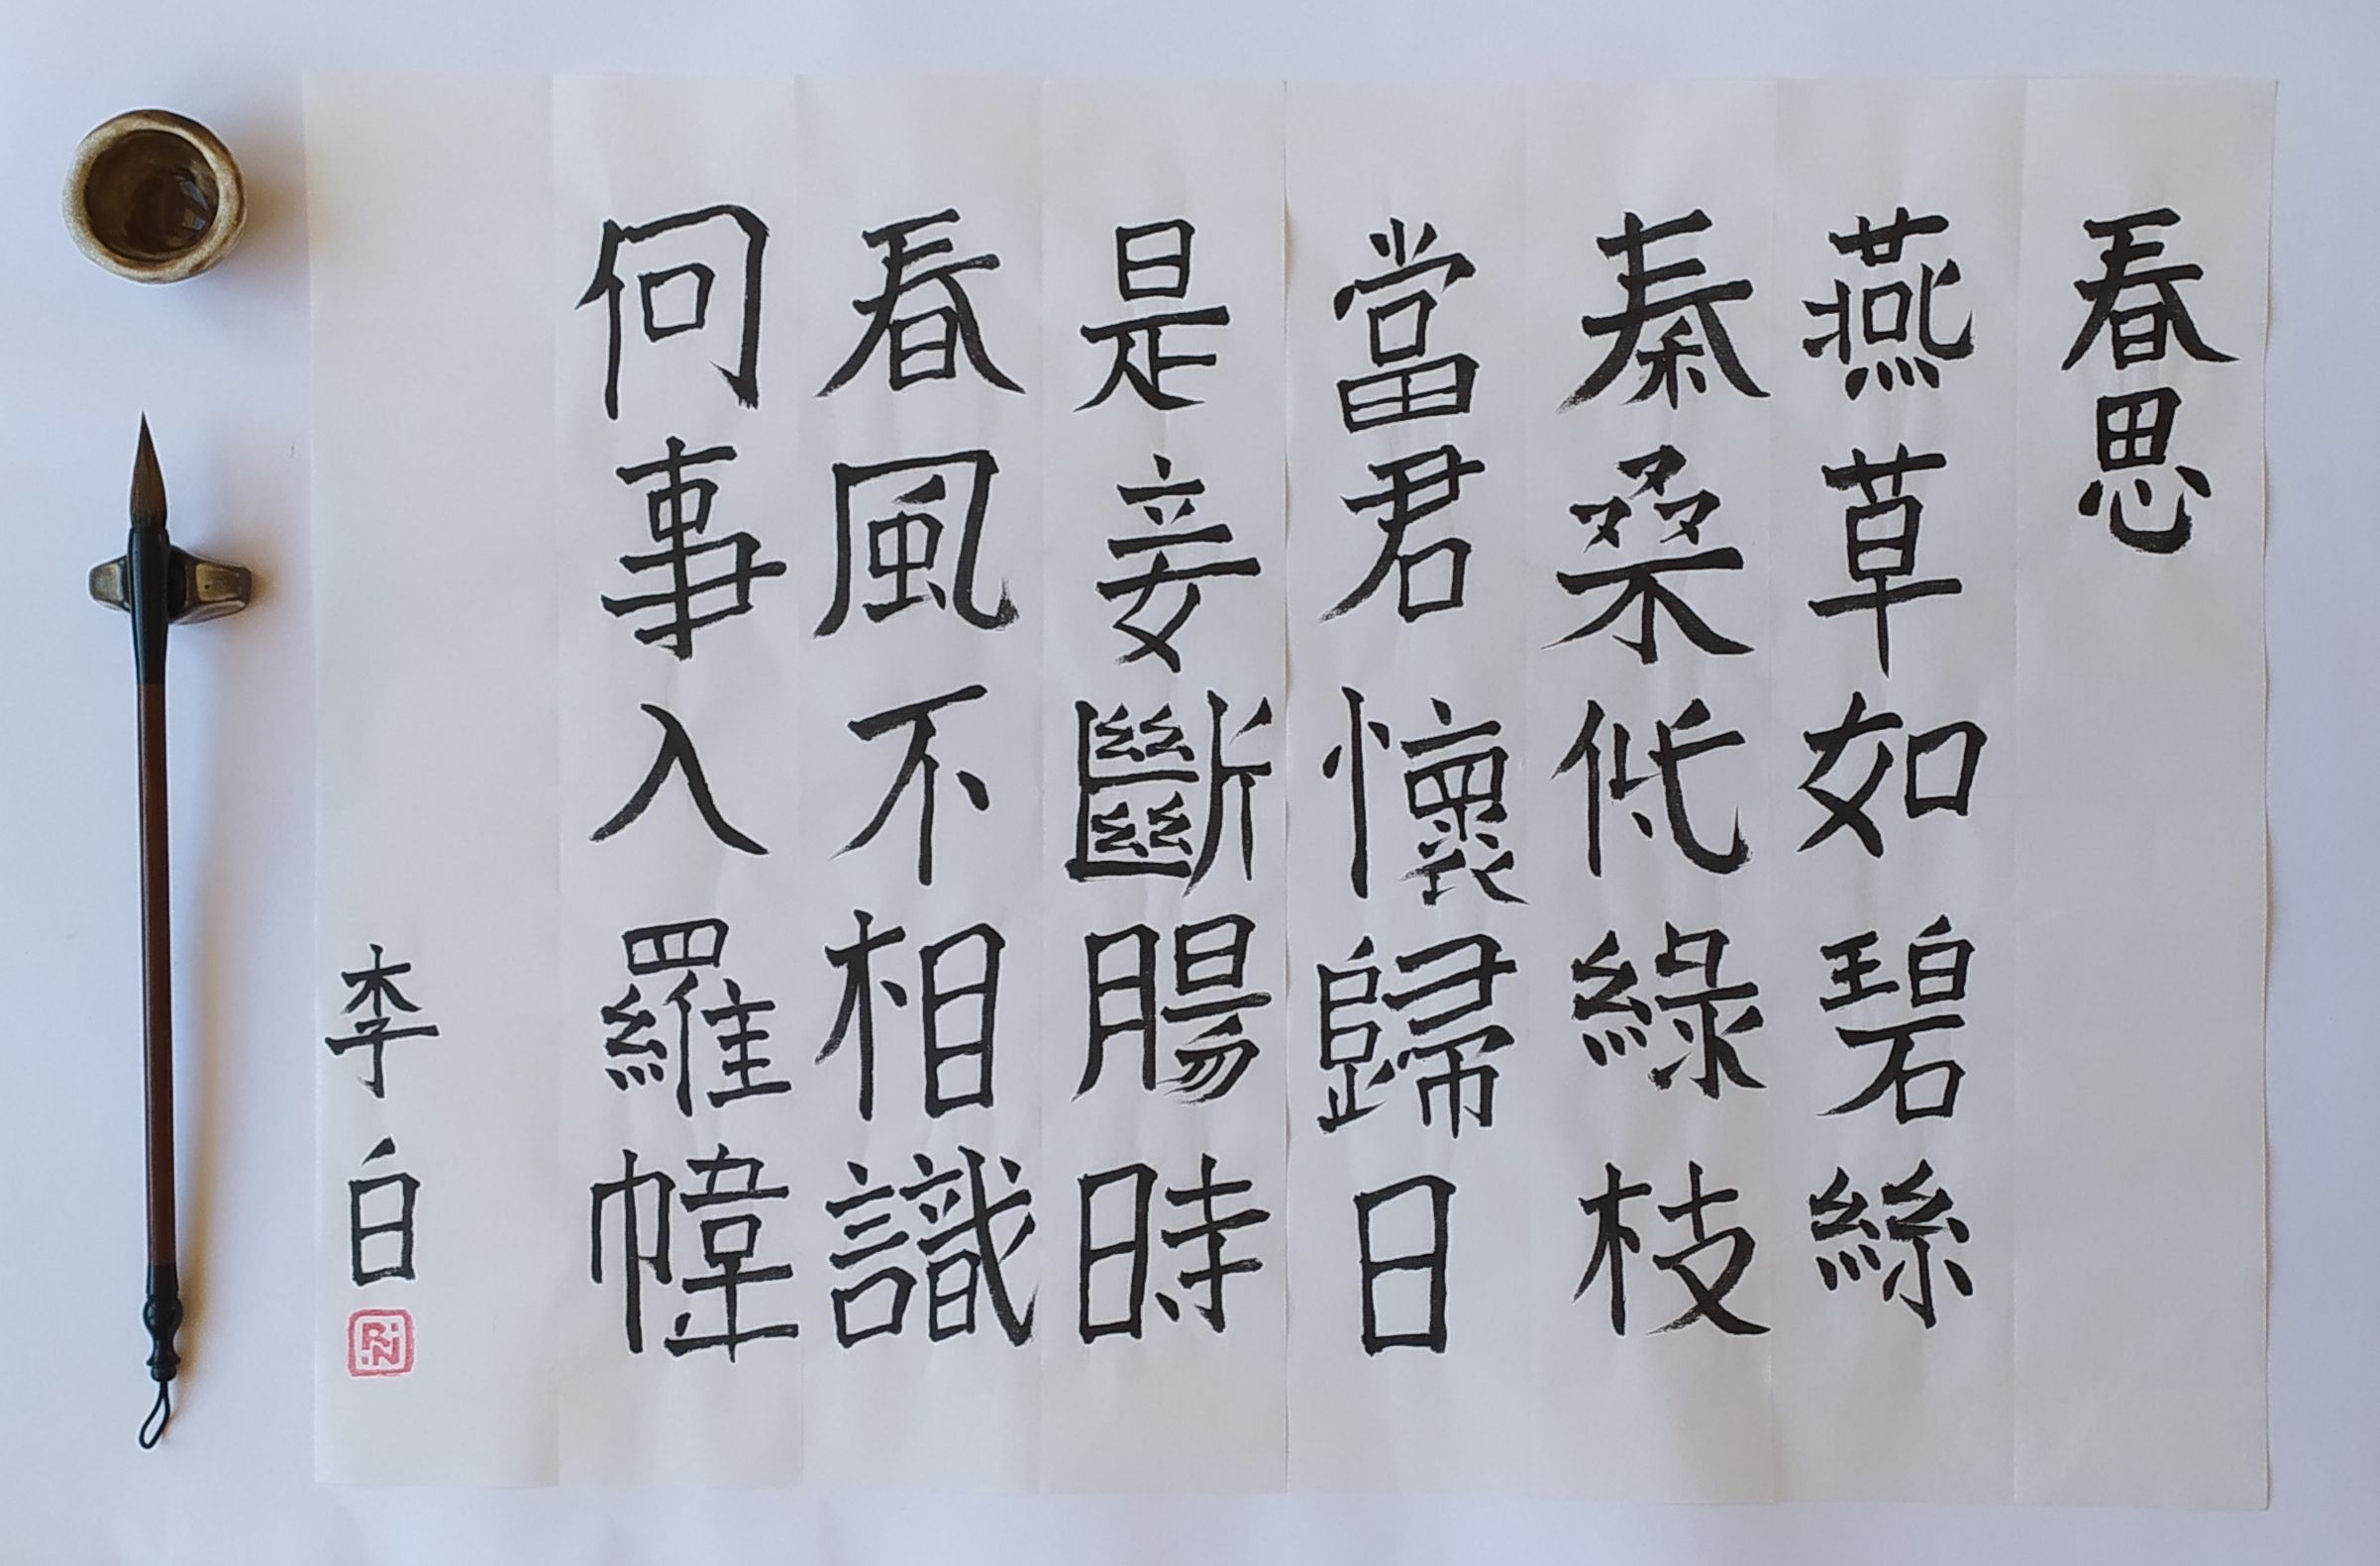 春思
燕草如碧絲
秦桑低綠枝
當君懷歸日
是妾斷腸時
春風不相識
何事入羅幃
李白
RiN